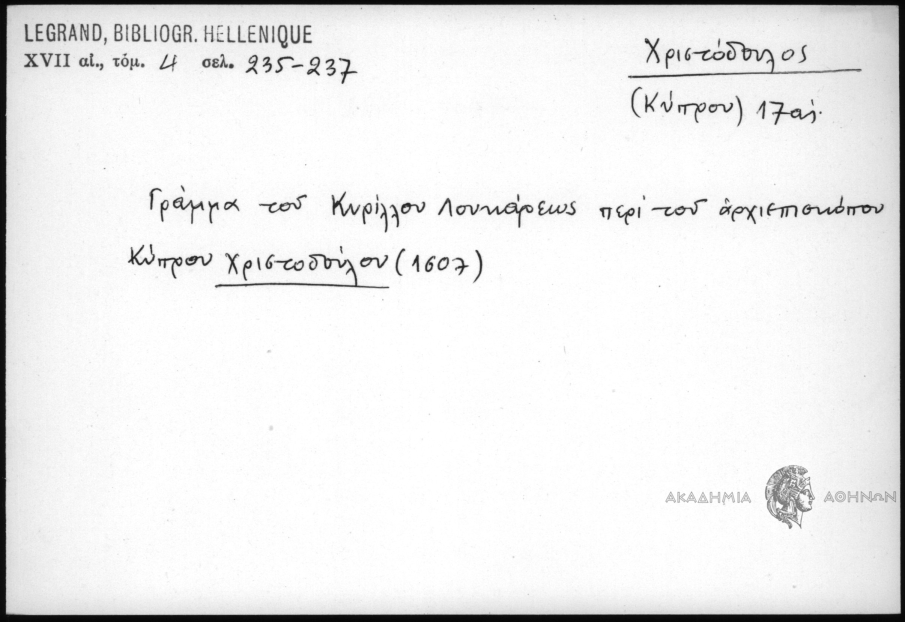 LEGRAND, BIBLIOGR. HELLENIQUE
XVII αἰ., τόμ. 4 σελ. 235-237
Χριστόδουλος
(Κύπρου) 17 αἰ.
Γράμμα τοῦ Κυρίλλου Λουκάρεως περὶ τοῦ ἀρχιεπισκόπου
Κύπρου Χριστοδούλου (1607)
ΑΚΑΔΗΜΙΑ ΑΘΗΝΩΝ